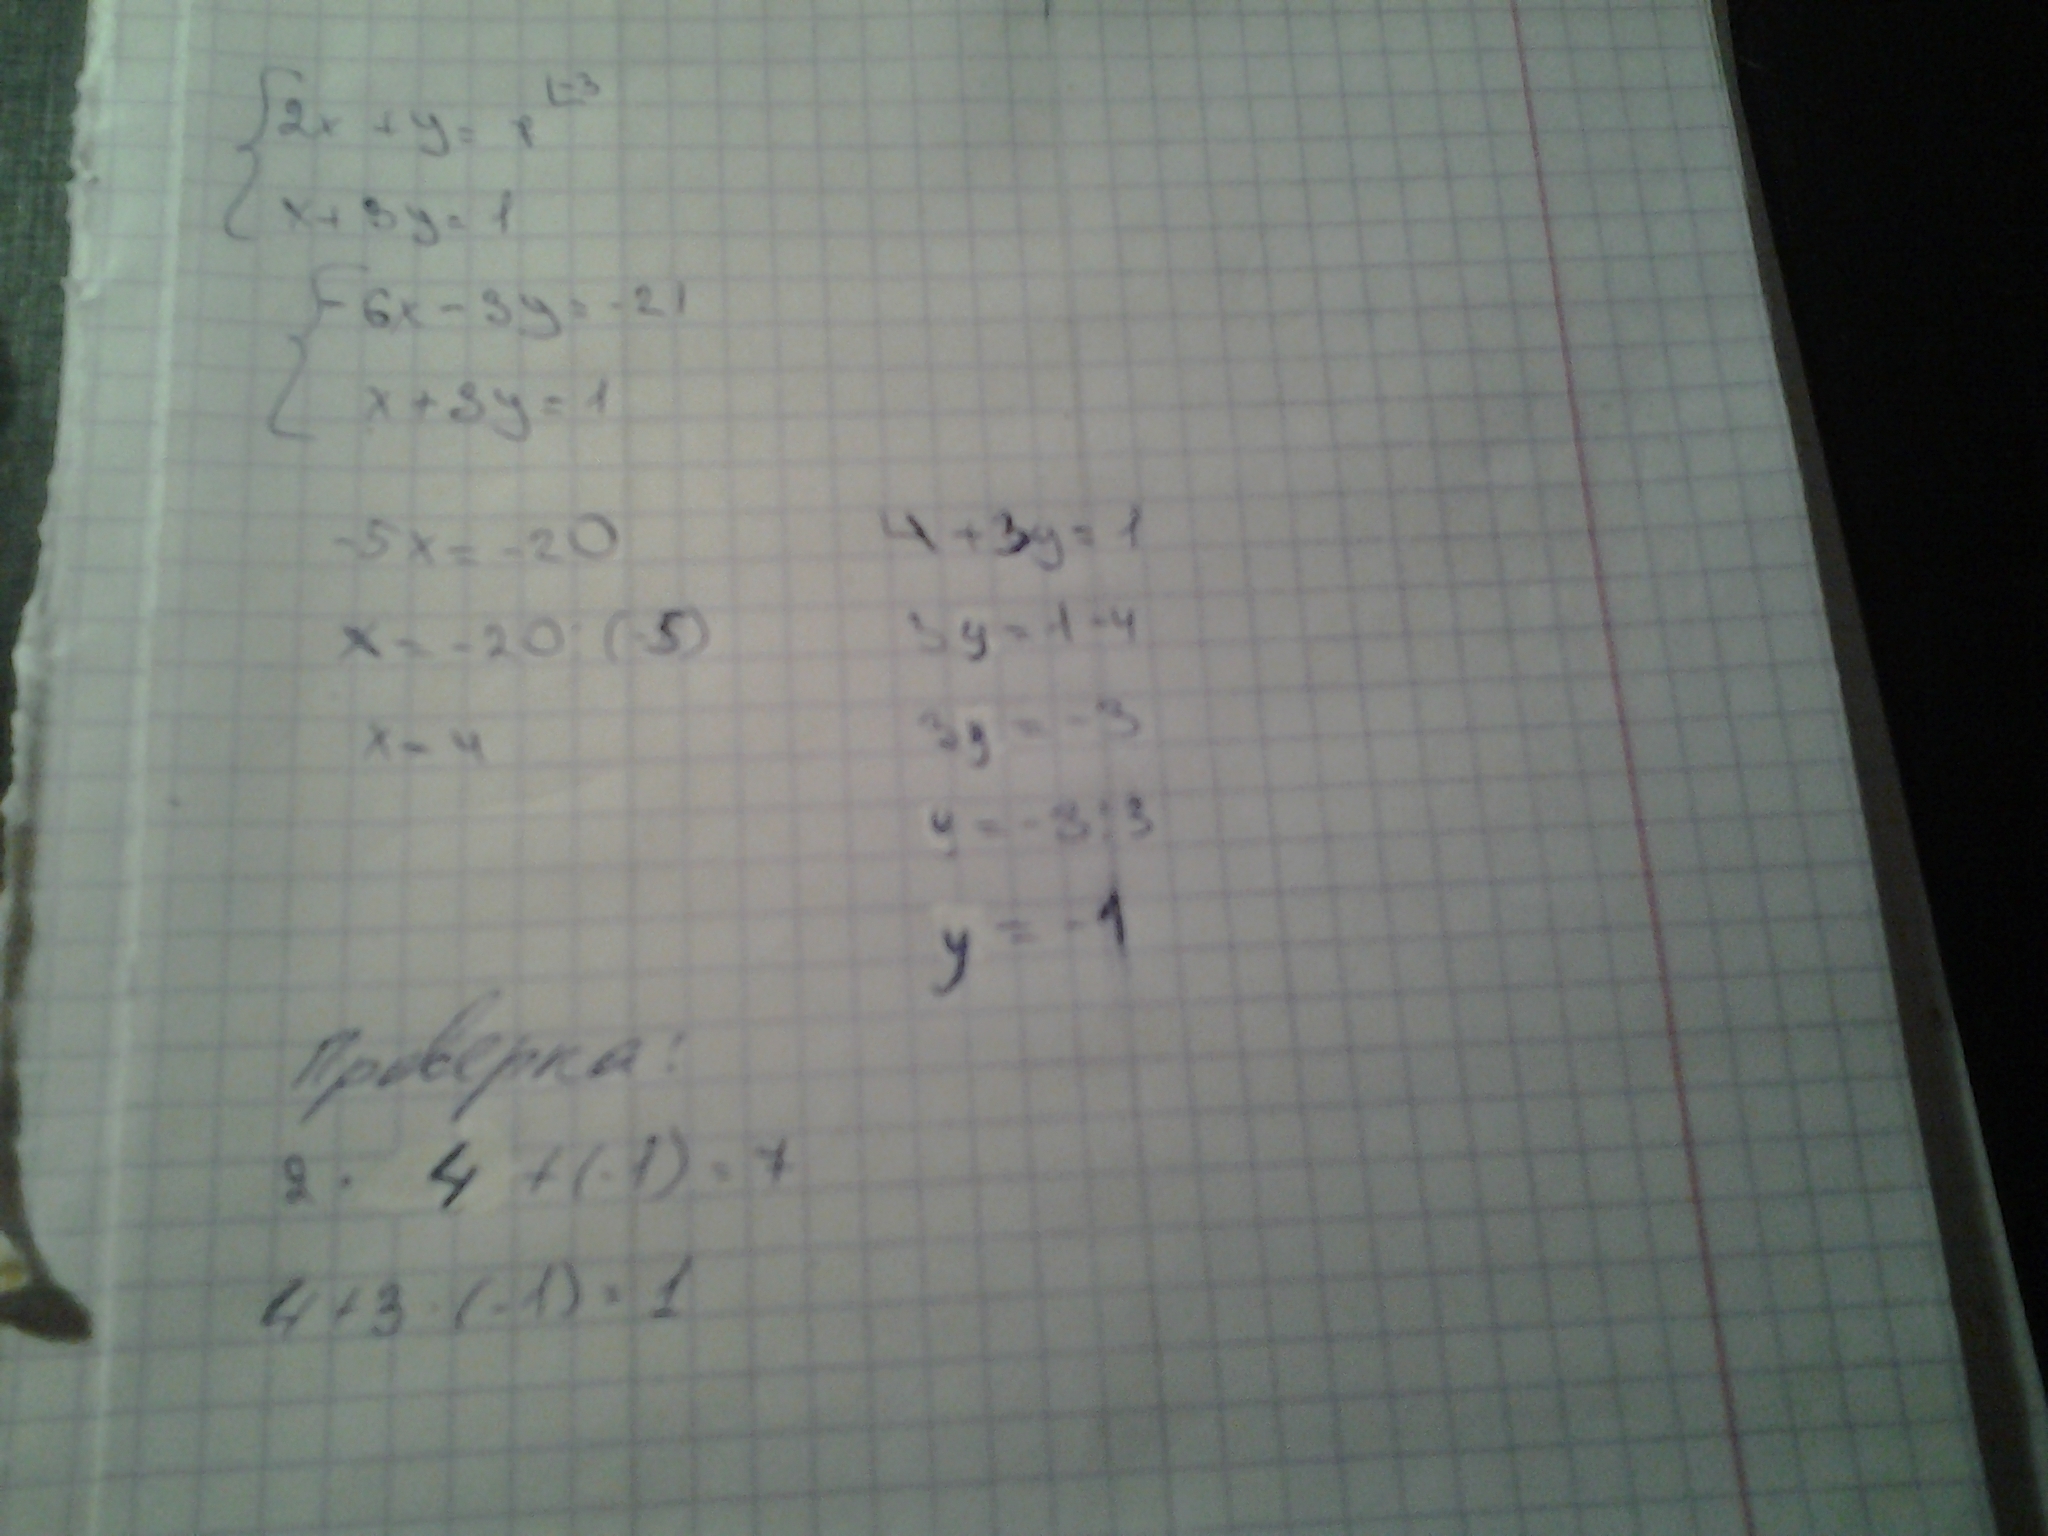 {2x + y = 7 |·-3
x + 3y = 1
{-6x - 3y = -21
x + 3y = 1
-5x = -20
x = -20 : (-5)
x = 4
4 + 3y = 1
3y = 1 - 4
3y = -3
y = -3 : 3
y = -1
Проверка:
2 · 4 + (-1) = 7
4 + 3 · (-1) = 1